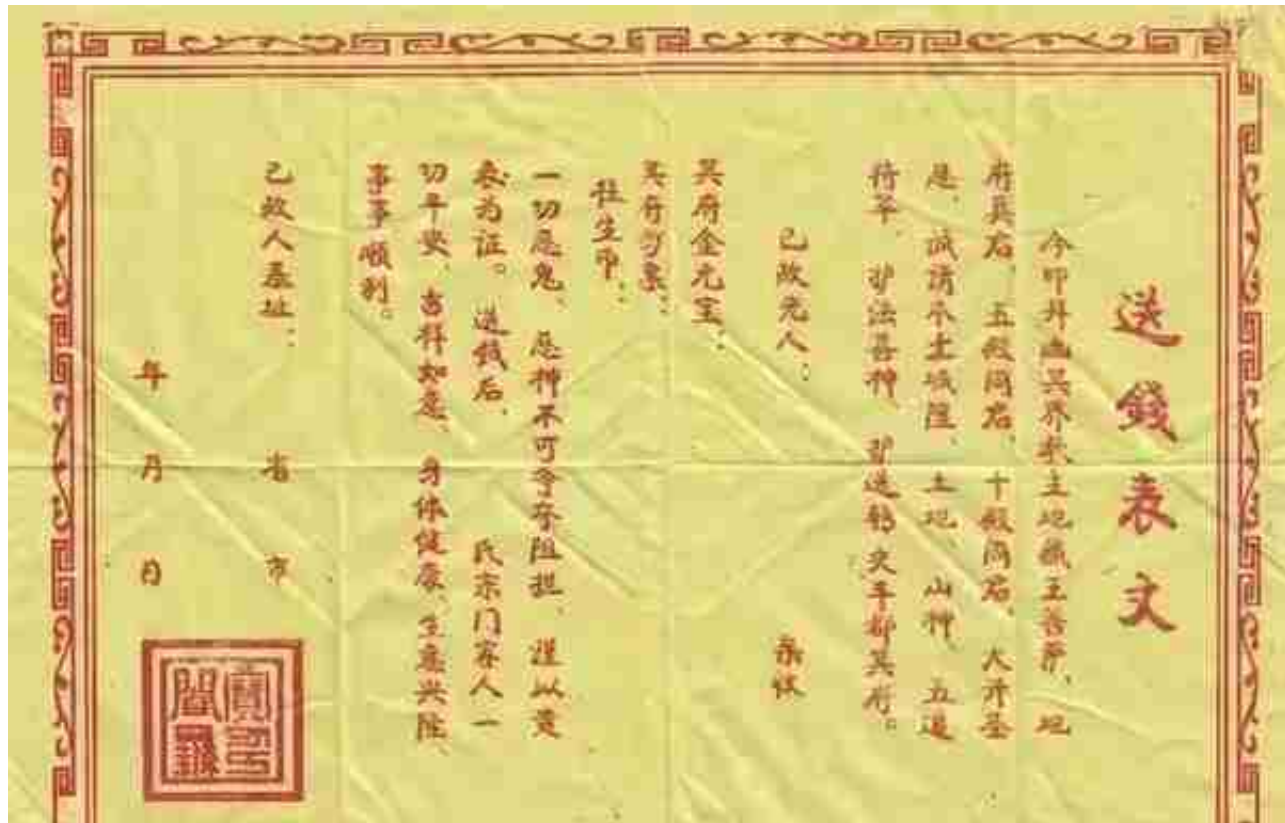 送錢表文
今叩拜幽冥界教主地藏王菩萨、地
府冥君、五殿阎君、十殿阎君、大开圣
恩、诚请本土城隍、土地、山神、五道
将军、护法善神、护送转交丰都冥府。
已故亡人：
亲收
冥府金元宝：
冥府钞票：
往生币：
一切恶鬼、恶神不可夺夺阻拦、谨以黄
表为证。送钱后、 氏宗门家人一
切平安、吉祥如意、身体健康、生意兴隆、
事事顺利。
已故人墓址： 省 市
年 月 日